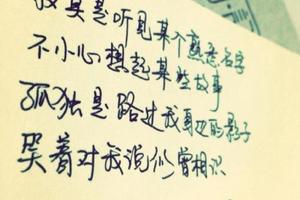 寂寞是听见某个熟悉名字
不小心想起某些故事
孤独是路过我身边的影子
哭着对我说似曾相识